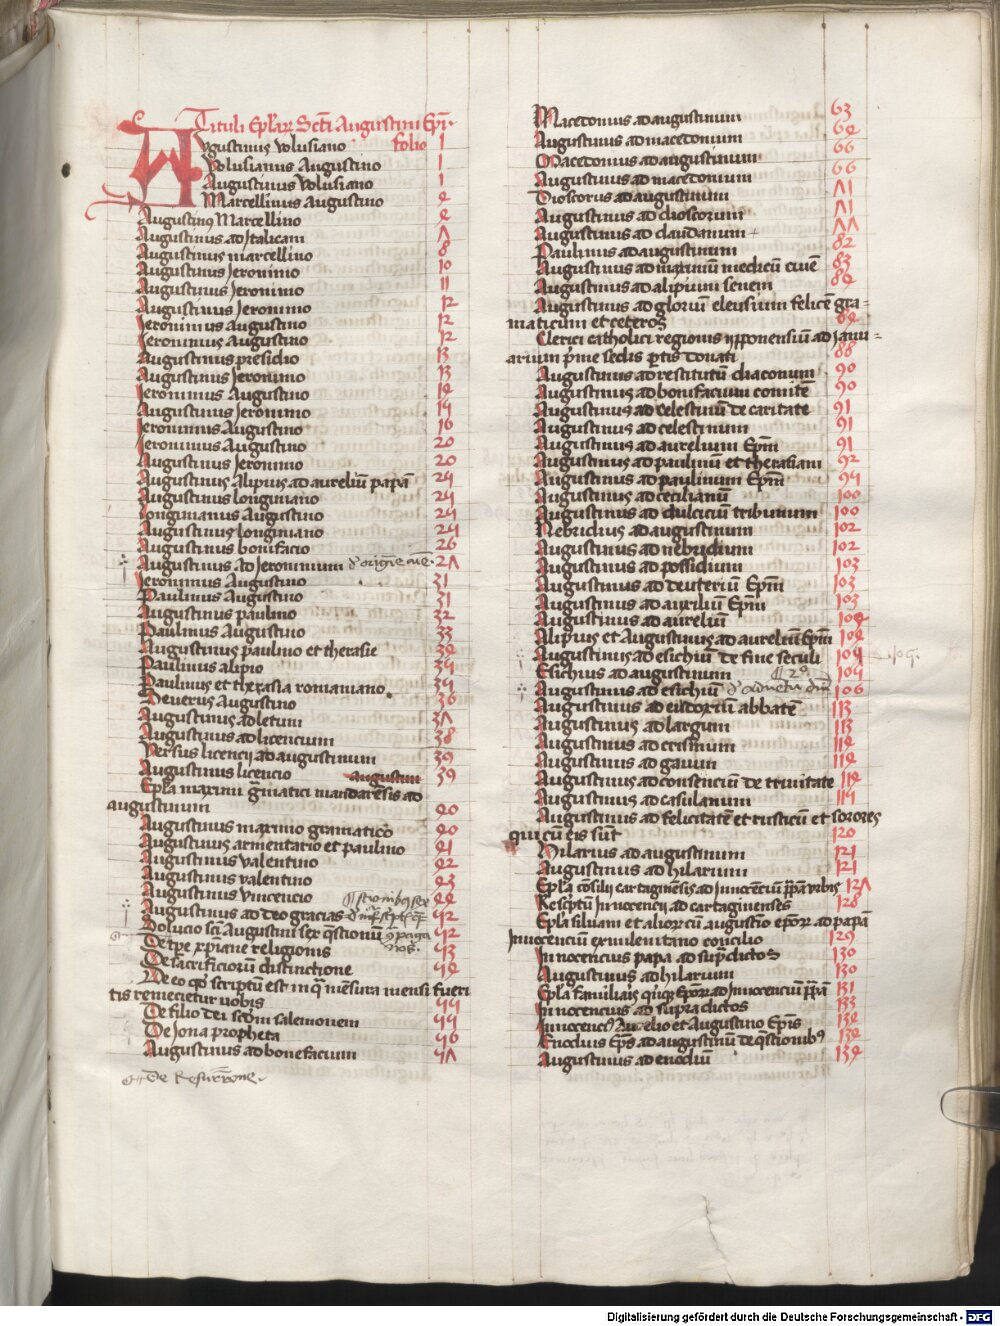 Tituli Eplar Scti Augustini Epi.
Augustinus Volusiano folio 1
Volusianus Augustino 1
Augustinus Volusiano 1
Marcellinus Augustino 2
Augustinus Marcellino 4
Augustinus ad Italicam Λ
Augustinus marcellino 8
Augustinus Jeronimo 10
Augustinus Jeronimo 11
Augustinus Jeronimo 12
Jeronimus Augustino 12
Jeronimus Augustino 12
Augustinus presidio 13
Augustinus Jeronimo 13
Jeronimus Augustino 14
Augustinus Jeronimo 15
Jeronimus Augustino 16
Jeronimus Augustino 20
Augustinus Jeronimo 20
Augustinus Alipius ad aureliū papā 24
Augustinus longiniano 24
longinianus Augustino 24
Augustinus longiniano 24
Augustinus bonifacio 26
Augustinus ad Jeronimum 2Λ
Jeronimus Augustino 31
Paulinus Augustino 31
Augustinus paulino 32
Paulinus Augustino 33
Augustinus paulino et therasie 34
Paulinus alipio 35
Paulinus et therasia romaniano 35
Severus Augustino 36
Augustinus ad letum 3Λ
Augustinus ad licencium 38
Versus licencij ad augustinum 39
Augustinus licencio augustin 39
Epla maximi gmatici mandarēsis ad
augustinum 40
Augustinus maximo gramatico 40
Augustinus armentario et paulino 41
Augustinus valentino 42
Augustinus valentino 43
Augustinus vincencio 44
Augustinus ad deo gracias 52
Solucio scti Augustini sex qstionū 52
De tpe xpiane religionis 53
De sacrificiorū distinctione 54
De eo qd scriptū est in q mēsura mensi fueri
tis remecietur vobis 55
De filio dei scdm salemonem 55
De Jona propheta 56
Augustinus ad bonefacium 5Λ
De Resurrcone.
Macedonius ad augustinum 63
Augustinus ad macedonium 64
Macedonius ad augustinum 66
Augustinus ad macedonium 66
Dioscorus ad augustinum Λ1
Augustinus ad dioscorum Λ1
Augustinus ad claudanum ΛΛ
Paulinus ad augustinum 82
Augustinus ad maximū medicū tenē 83
Augustinus ad alipium senem 84
Augustinus ad gloriū eleusium felicē gra=
maticum et ceteros 84
Clerici catholici regionis ypponensiū ad Janu=
arium pime sedis ptis donati 88
Augustinus ad restitutū diaconum 90
Augustinus ad bonifacium comitē 90
Augustinus ad celestinū de caritate 91
Augustinus ad celestinum 91
Augustinus ad aurelium Epm 91
Augustinus ad paulinū et therasiam 92
Augustinus ad paulinum Epm 95
Augustinus ad cecilianū 100
Augustinus ad dulciciū tribunum 100
Nebridius ad augustinum 102
Augustinus ad nebridium 102
Augustinus ad possidium 103
Augustinus ad deuteriū Epm 103
Augustinus ad auxiliū Epm 103
Augustinus ad aureliū 104
Alipius et Augustinus ad aureliū Epm 104
Augustinus ad esichiū de fine seculi 105
Esichius ad augustinum 105
Augustinus ad esichiū 106
Augustinus ad eudoxiū abbatē 113
Augustinus ad largum 113
Augustinus ad crisinum 114
Augustinus ad gaium 114
Augustinus ad consenciū de trinitate 114
Augustinus ad casulanum 115
Augustinus ad felicitatē et rusticū et sorores
qui cū eis sūt 120
Hilarius ad augustinum 121
Augustinus ad hilarium 121
Epla cōsilij cartaginēsis ad Innocenciū ppam vrbis 12Λ
Rescptū Innocencij ad cartaginenses 128
Epla siluani et alior cū augustio epor ad papam
Innocenciū ex mileuitano concilio 129
Innocencius papa ad supdictos 130
Augustinus ad hilarium 130
Epla familiaris quiqz Epor ad Innocenciū ppam 131
Innocencius ad supra dictos 133
Innocenci Aurelio et Augustino Epis 134
Euodius Eps ad augustinū de qstionibus 134
Augustinus ad euodiū 134
Digitalisierung gefördert durch die Deutsche Forschungsgemeinschaft - DFG